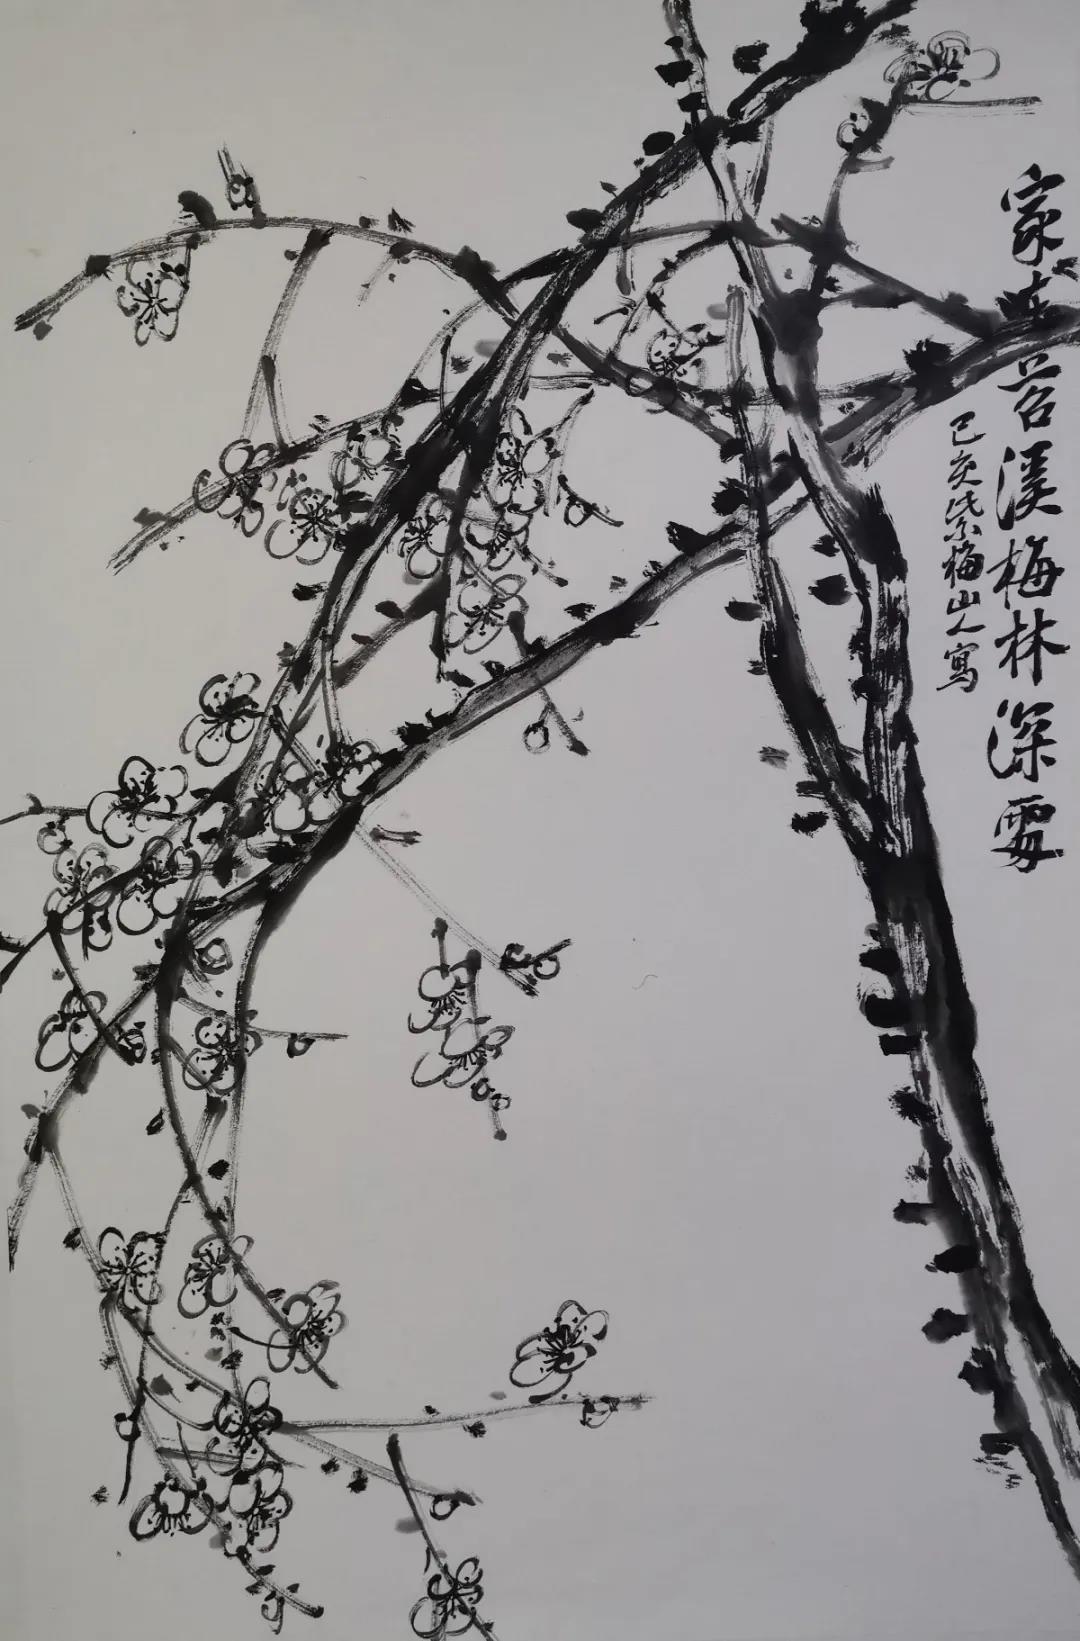 家在苕溪梅林深処
己亥紫梅山人寫